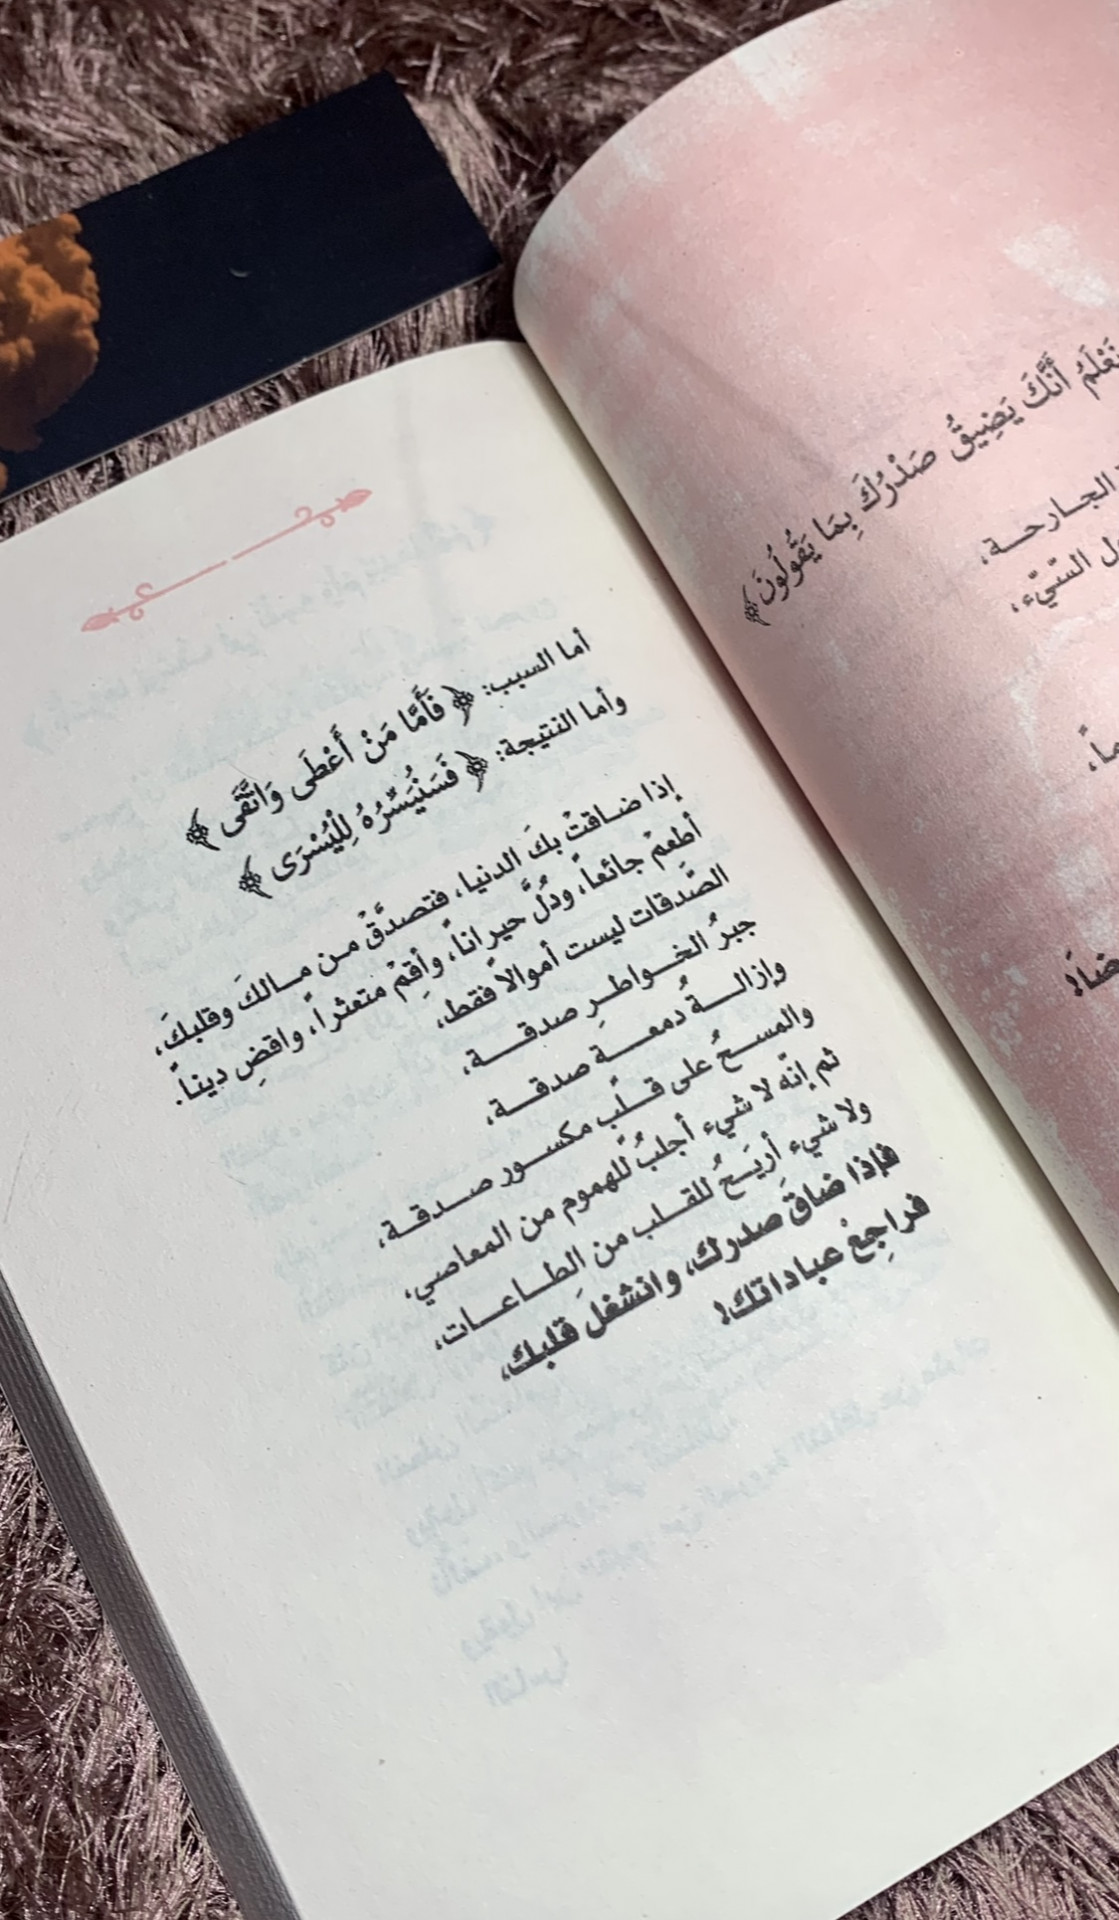 نَعْلَمُ أَنَّكَ يَضِيقُ صَدْرُكَ بِمَا يَقُولُونَ﴾
الجارحة،
السّيّء،
أما السبب: ﴿فَأَمَّا مَنْ أَعْطَى وَاتَّقَى﴾
وأما النتيجة: ﴿فَسَنُيَسِّرُهُ لِلْيُسْرَى﴾
إذا ضاقتْ بكَ الدنيا، فتصدَّقْ من مالكَ وقلبكَ،
أطعمْ جائعاً، ودُلَّ حيراناً، وأقِمْ متعثراً، واقضِ ديناً.
الصَّدقات ليست أموالاً فقط،
جبرُ الخواطرِ صدقة،
وإزالةُ دمعةٍ صدقة،
والمسحُ على قلبٍ مكسور صدقة،
ثم إنّه لا شيء أجلبُ للهموم من المعاصي،
ولا شيء أريَحُ للقلب من الطاعات،
فإذا ضاقَ صدرك، وانشغلَ قلبك،
فراجِعْ عباداتك!